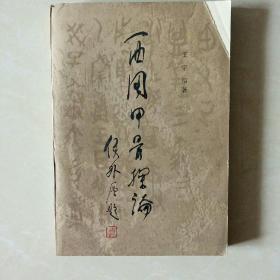 西周甲骨探论
王宇信著
侯外庐题